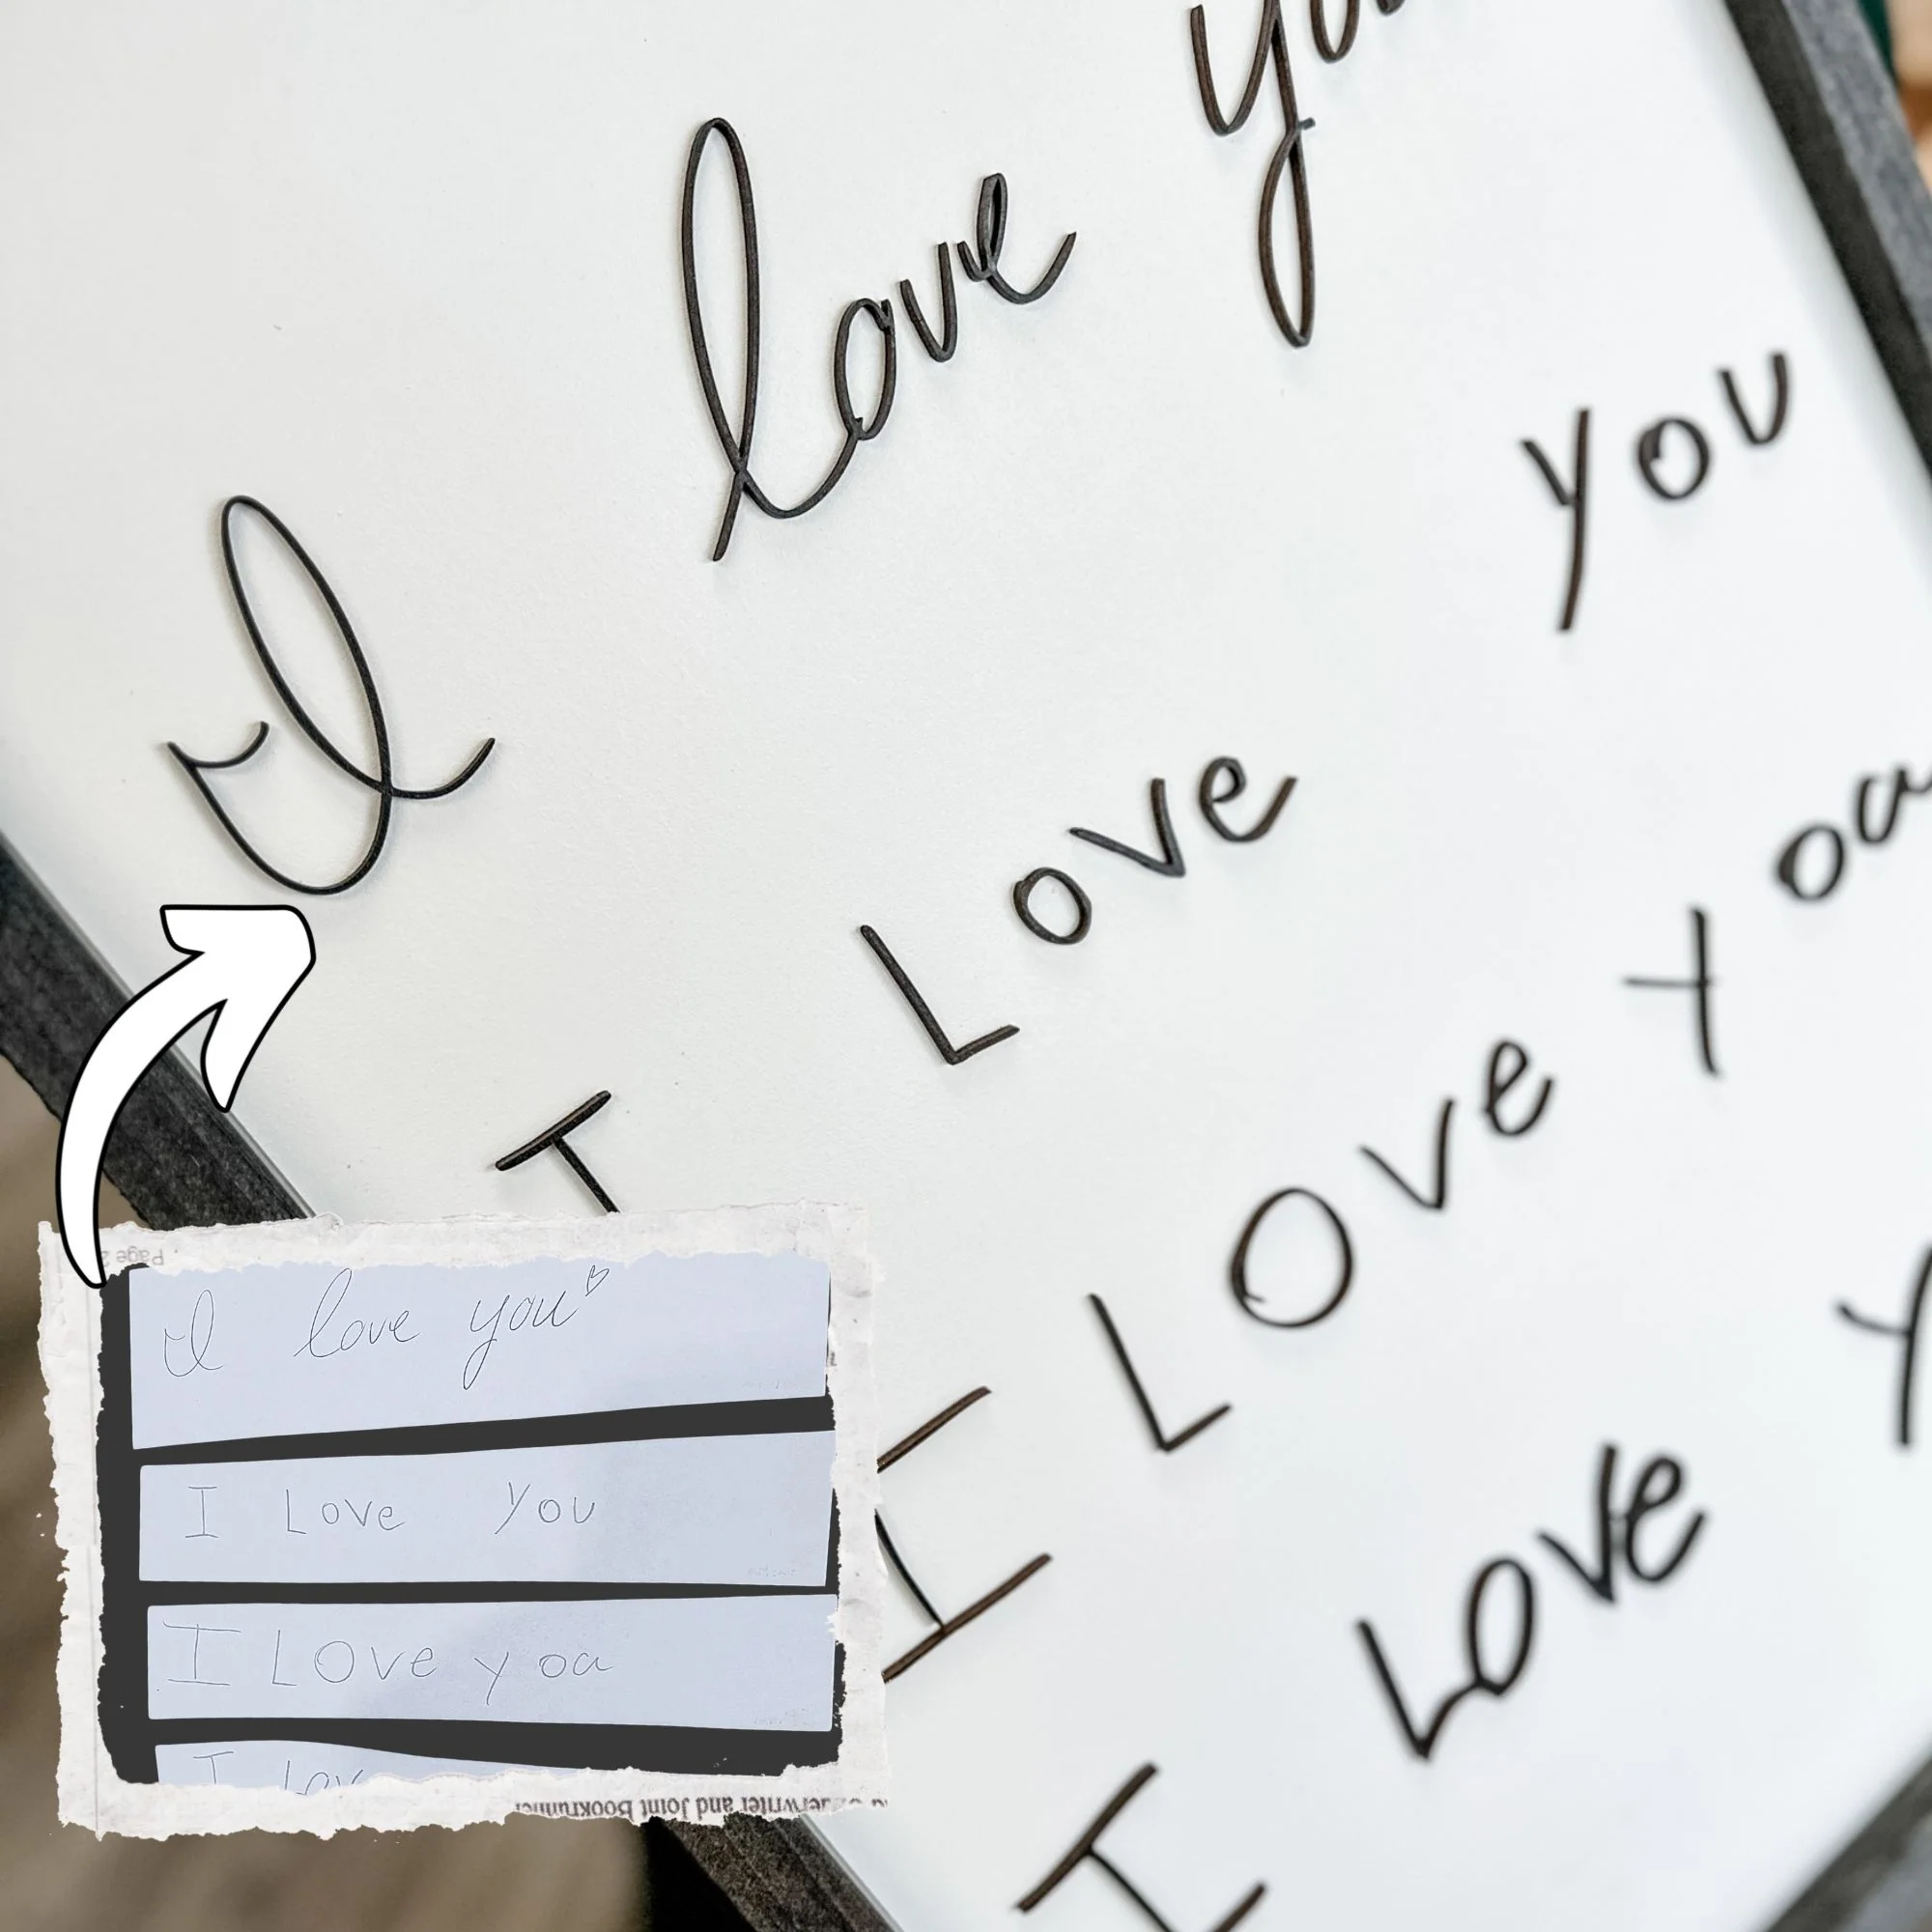 I love you
I Love you
I LOve yoa
I LOve y
Page 2
I love you
I Love you
I LOve yoa
I Lov
erwriter and Joint Bookrunner